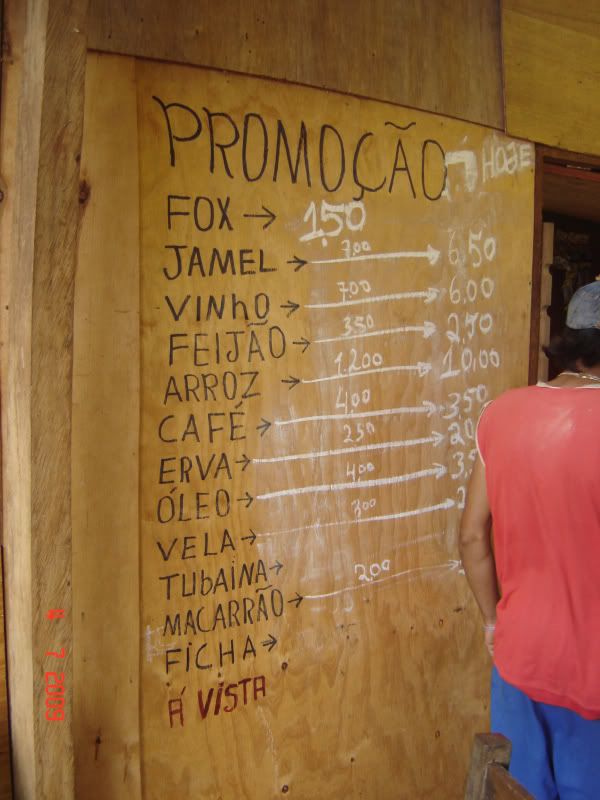 PROMOÇÃO HOJE
FOX → 1,50
JAMEL → 7,00 → 6,50
VINhO → 7,00 → 6,00
FEIJÃO → 3,50 → 2,50
ARROZ → 1200 → 10,00
CAFÉ → 4,00 → 3,50
ERVA → 250
ÓLEO → 4,00
VELA → 300
TUBAINA →
MACARRÃO → 2,00
FICHA →
Á VISTA
7 2008